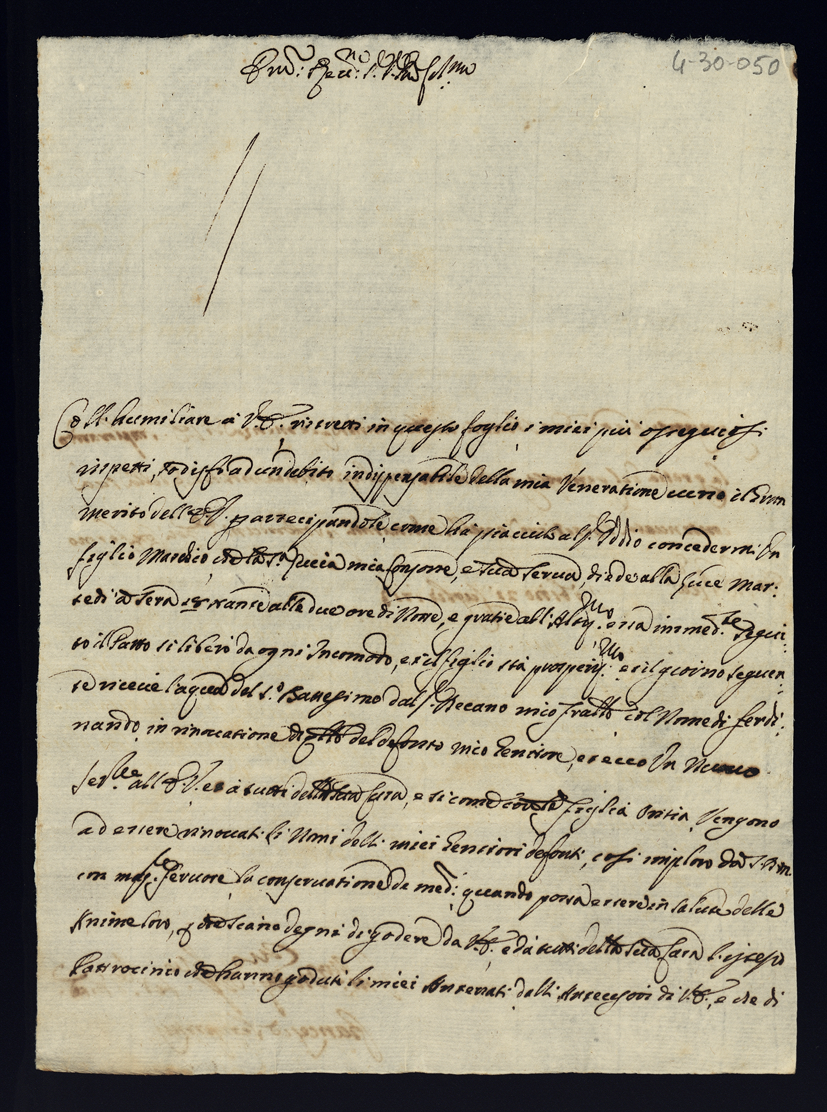 4-30-050
Coll humiliare à V.E. ristretti in questo foglio i miei più ossequiosi
rispetti, sodisfò ad un debito indispensabile della mia Veneratione verso il
merito dell'E.V. partecipandole come hà piacciuto al Sig. Iddio concedermi Un
figlio Maschio che la Sra Lucia mia Consorte, e sua serva, diede alla luce Mar:
tedi à sera avante alle due ore di Notte, e gratie all' Altiss.mo essa immed.te segui:
to il Parto si liberò da ogni Incomodo, e il figlio stà prosperiss.mo e il giorno seguen:
te ricevè l'aqua del S.o Battesimo dal Sr. Decano mio Fratello col Nome di Ferdi:
nando, in rinovatione di del defonto mio Genitore, et ecco Un Nuovo
all' E.V. et à tutti della sua Casa, e si come figlia Vengono
ad essere rinovati li Nomi delli miei Genitori defonti, così imploro dà
con mag.re fervore la conservatione de med.i quando possa essere in salute delle
Anime loro, e che siano degni di godere da V.E. e da tutti della sua Casa l'istesso
Patrocinio che hanno goduti li miei Antenati dalli Antecessori di V.E., e che di